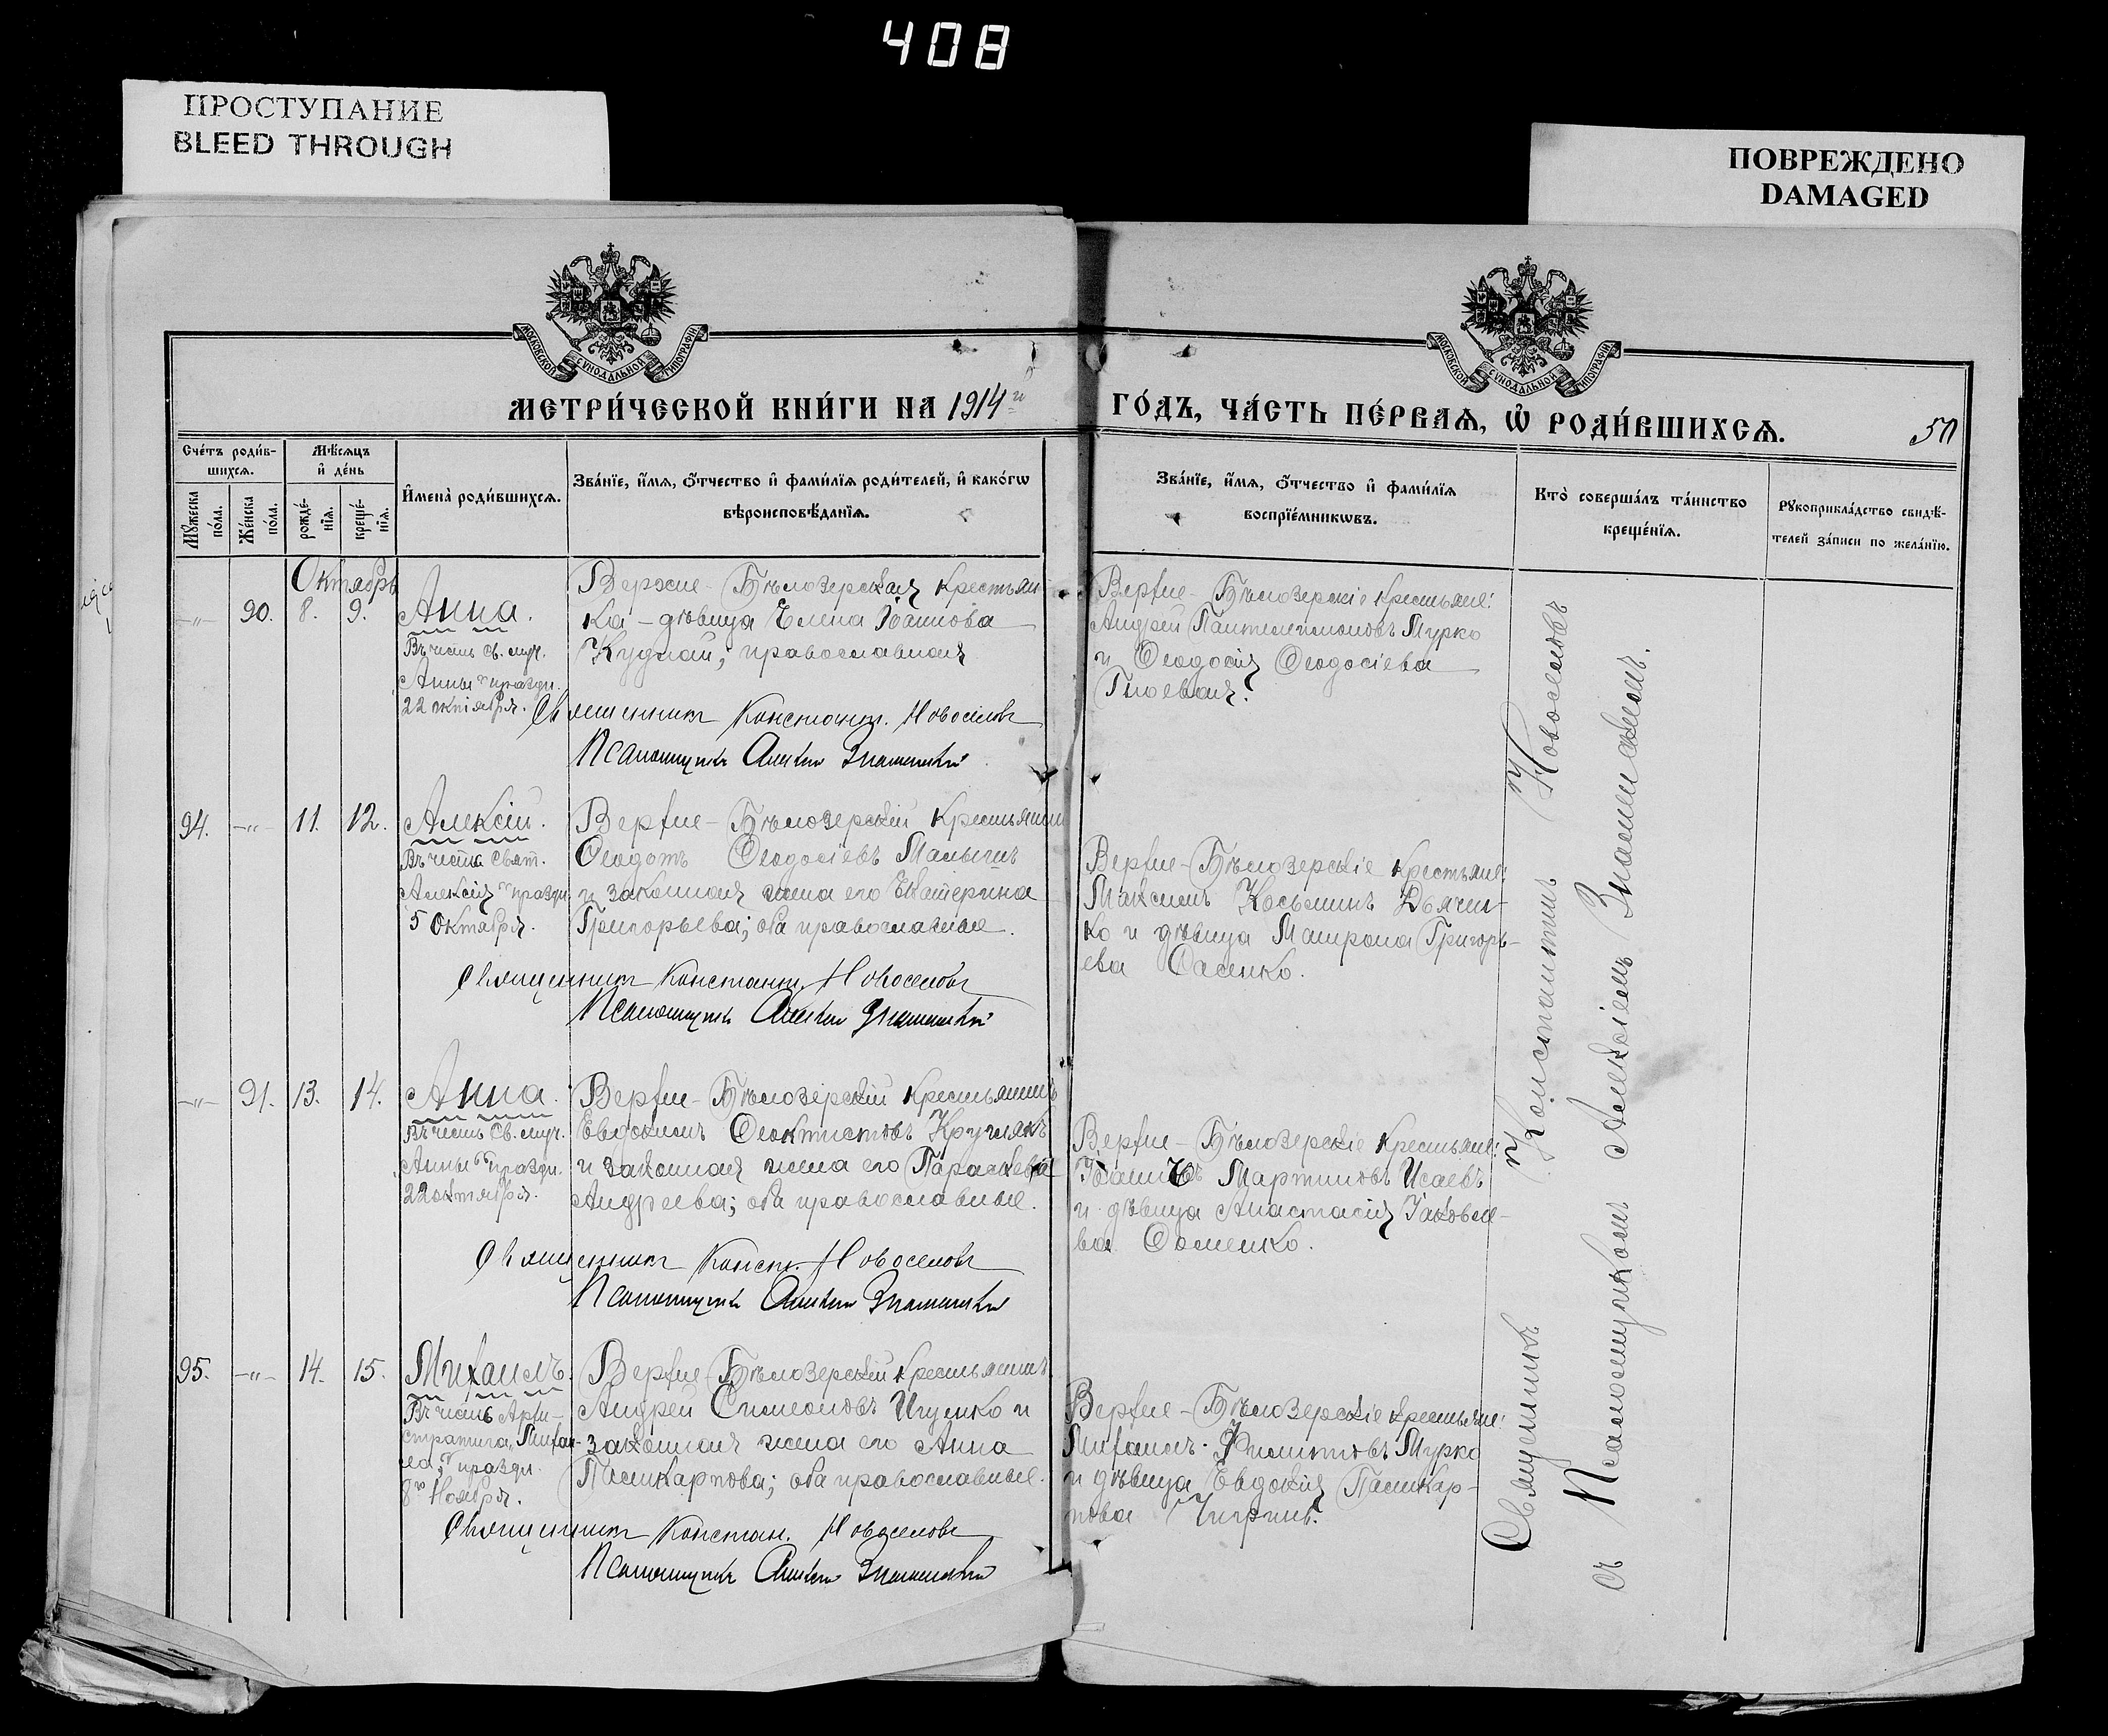 408
ПРОСТУПАНИЕ
BLEED THROUGH
ПОВРЕЖДЕНО
DAMAGED
МОСКОВСКОЙ СѴНОДАЛЬНОЙ ТИПОГРАФІИ
МОСКОВСКОЙ СѴНОДАЛЬНОЙ ТИПОГРАФІИ
МЕТРИ́ЧЕСКОЙ КНИ́ГИ НА 1914й
ГО́ДЪ, ЧА́СТЬ ПЕ́РВАѦ, Ѡ҆ РОДИ́ВШИХСѦ.
50
Сче́тъ роди́в-
шихсѧ.
Мѣ́сѧцъ
и҆ де́нь
Мꙋ́жеска
по́ла.
Же́нска
по́ла.
рожде́-
нїѧ.
креще́-
нїѧ.
И҆мена̀ роди́вшихсѧ.
Зва́нїе, и҆́мѧ, ѻ҆́тчество и҆ фами́лїѧ роди́телей, и҆ како́гѡ
вѣроисповѣ́данїѧ.
Зва́нїе, и҆́мѧ, ѻ҆́тчество и҆ фами́лїѧ
воспрїе́мникѡвъ.
Кто̀ соверша́лъ та́инство
креще́нїѧ.
Рꙋкоприкла́дство свидѣ́-
телей за́писи по жела́нїю.
Октябрь
-"- 90. 8. 9.
Анна.
Въ честь Св. муч.
Анны празды.
22 октября.
Верхне-Бѣлозерская крестьян-
ка-дѣвица Елена Іоаннова
Кудлай; православная
Священникъ Констант. Новоселовъ
Псаломщикъ Алексѣй Знаменскій
Верхне-Бѣлозерскіе крестьяне:
Андрей Пантелеимоновъ Мурко
и Ѳеодосія Ѳеодосіева
Гноевая.
94. -"- 11. 12.
Алексій.
Въ честь Свят.
Алексія праздн.
5 Октября.
Верхне-Бѣлозерскій крестьянинъ
Ѳеодотъ Ѳеодосіевъ Малыгинъ
и законная жена его Екатерина
Григорьева; оба православные.
Священникъ Констант. Новоселовъ
Псаломщикъ Алексѣй Знаменскій
Верхне-Бѣлозерскіе крестьяне:
Максимъ Косьминъ Дьячен-
ко и дѣвица Матрона Григорь-
ева
-"- 91. 13. 14.
Анна.
Въ честь Св. муч.
Анны праздн.
22 октября.
Верхне-Бѣлозерскій крестьянинъ
Евдокимъ Ѳеоктистовъ Круглякъ
и законная жена его Параскева
Андреева; оба православные.
Священникъ Конст. Новоселовъ
Псаломщикъ Алексѣй Знаменскій
Верхне-Бѣлозерскіе крестьяне:
Іоаннъ Мартиновъ Исаевъ
и дѣвица Анастасія Іаковле-
ва Ѳоменко.
95. -"- 14. 15.
Михаилъ.
Въ честь Архи-
стратига Михаи-
ла, праздн.
8го Ноября.
Верхне-Бѣлозерскій крестьянинъ
Андрей Симеоновъ Ищенко и
законная жена его Анна
Поликарпова; оба православные.
Священникъ Констан. Новоселовъ
Псаломщикъ Алексѣй Знаменскій
Верхне-Бѣлозерскіе крестьяне:
Михаилъ Филиповъ Мурко
и дѣвица Евдокія Поликар-
пова Чигринъ.
Священникъ Константинъ Новоселовъ
съ Псаломщикомъ Алексіемъ Знаменскимъ.